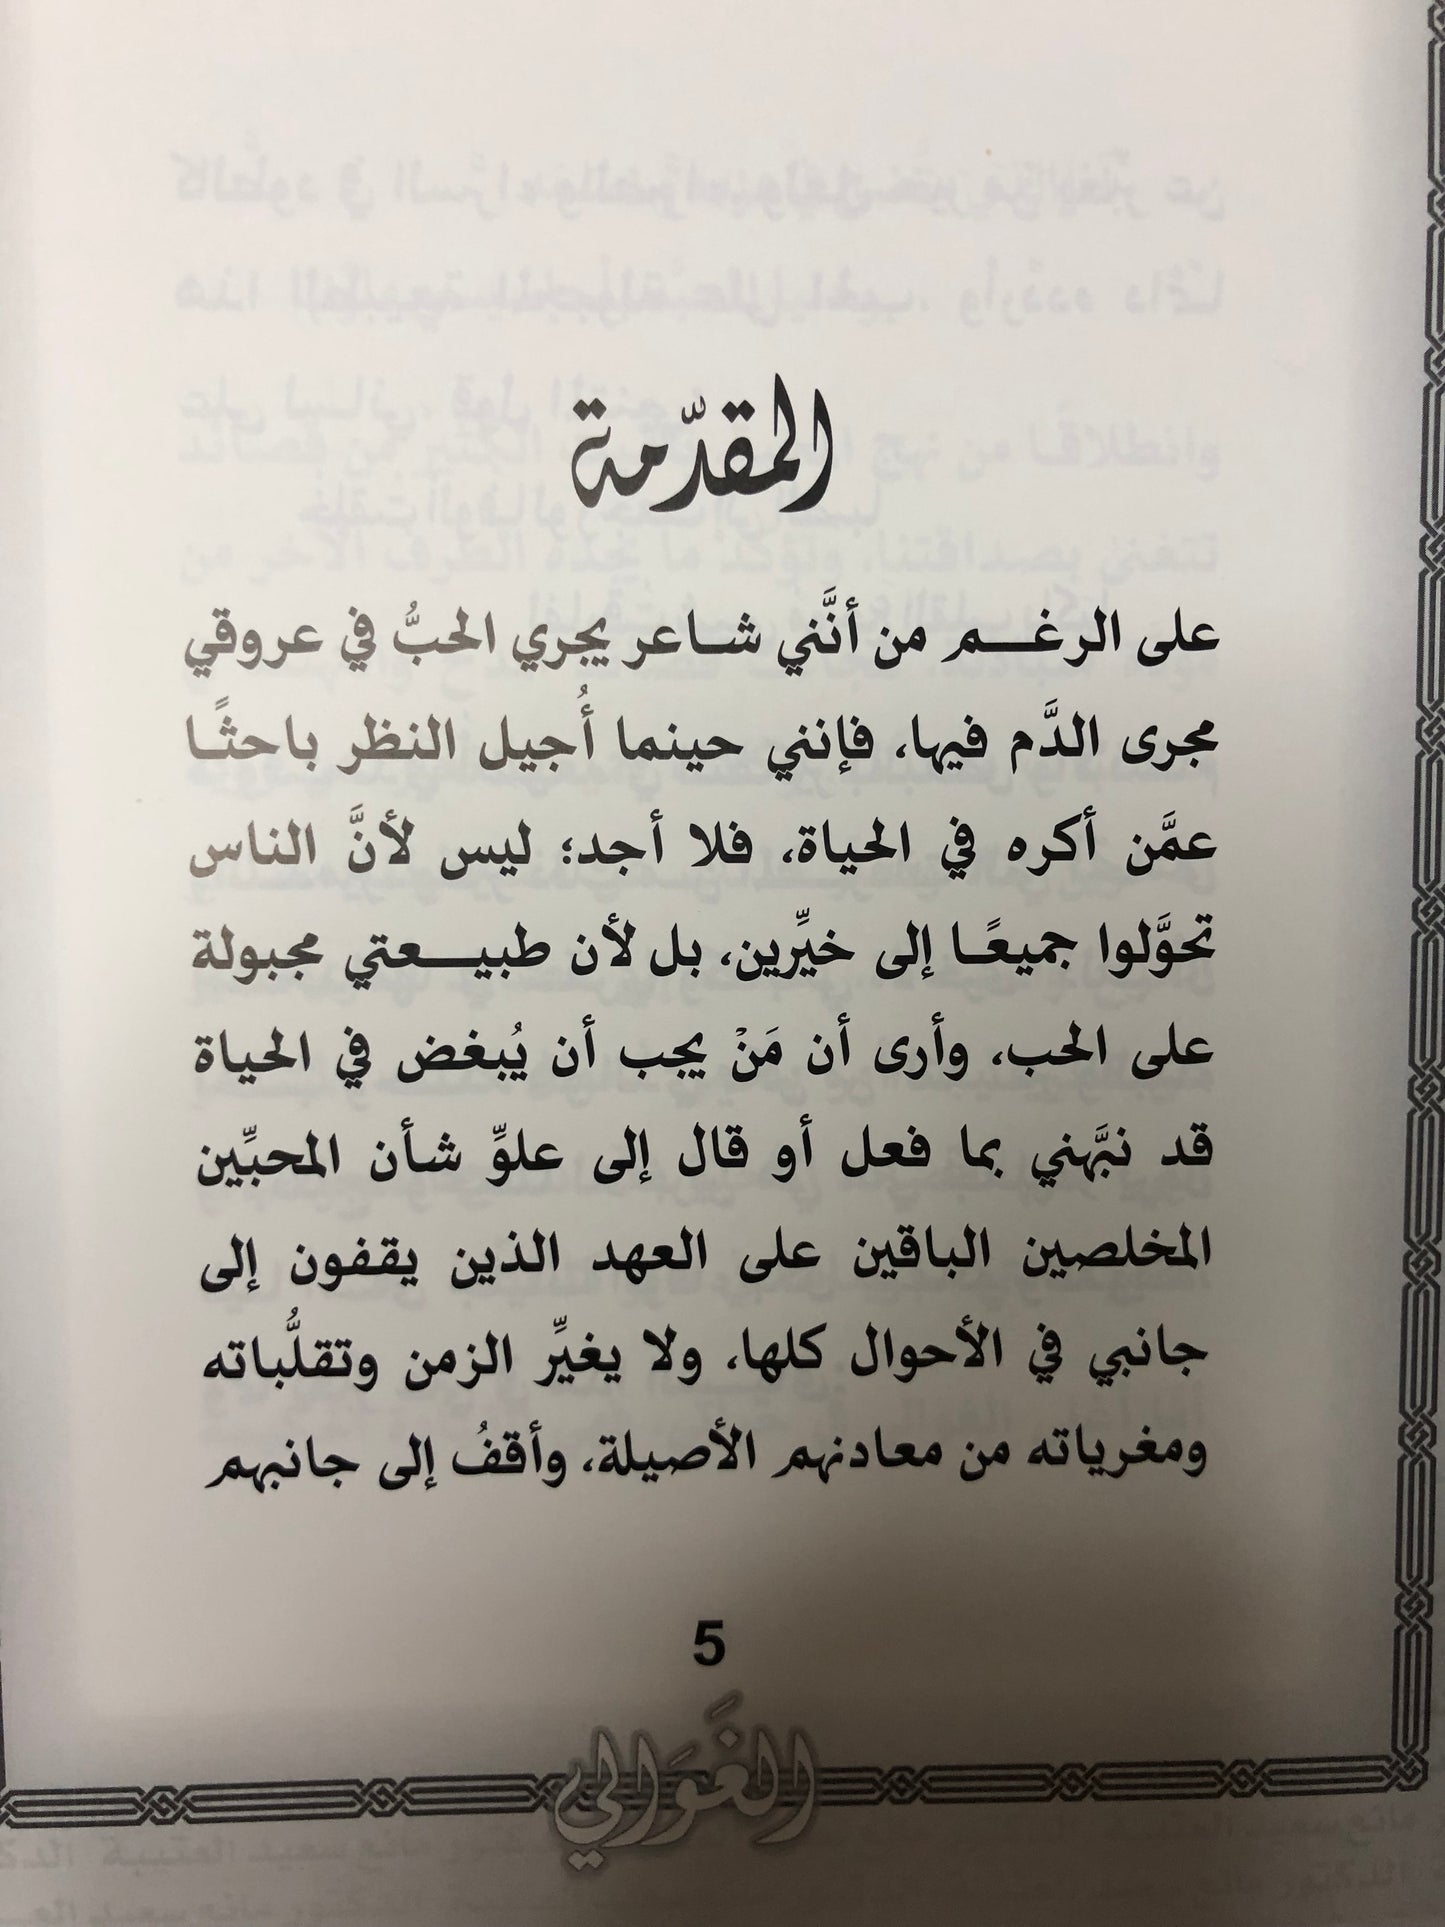 المقدّمة
على الرغــم من أنَّني شــاعر يجري الحبُّ في عروقي
مجرى الدَّم فيها، فإنني حينما أُجيل النظر باحثًـا
عمَّن أكره في الحياة، فلا أجد؛ ليس لأنَّ الناس
تحوَّلوا جميعًـا إلى خيِّرين، بل لأن طبيــعتي مجبولة
على الحب، وأرى أن مَنْ يجب أن يُبغض في الحياة
قد نبَّهني بما فعل أو قال إلى علوِّ شأن المحبِّين
المخلصين الباقين على العهد الذين يقفون إلى
جانبي في الأحوال كلها، ولا يغيِّر الزمن وتقلُّباته
ومغرياته من معادنهم الأصيلة، وأقفُ إلى جانبهم
5
الغَوَالي